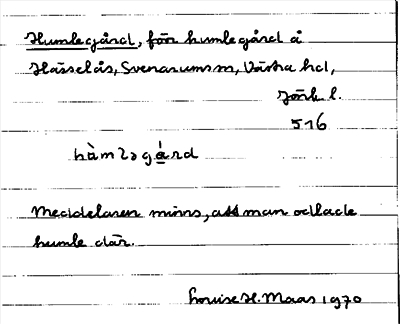 Humlegård, förr humlegård å
Hässelås, Svenarums sn, Västra hd,
Jönk. l.
516
hùmləgá̱rd
Meddelaren minns, att man odlade
humle där.
Louise H. Maas 1970